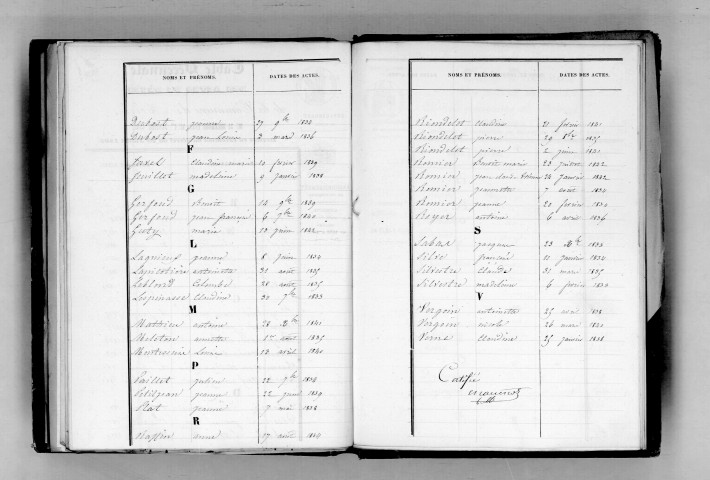 NOMS ET PRÉNOMS. DATES DES ACTES.
Dubost jeanne 27 9bre 1834
Dubost jean Louis 2 mai 1836
F
Faxel Claudine marie 10 fevrier 1839
Feuillet madelaine 9 janvier 1838
G
Forfond Benoit 14 9bre 1839
Forfond jean françois 6 9bre 1840
Guty marie 13 juin 1842
L
Lagnieux jeanne 8 juin 1834
Lapalotiere antoinette 31 août 1835
Leblond Colombe 28 août 1835
Lespinasse Claudine 30 7bre 1833
M
Mathieu antoine 28 Xbre 1840
Meleton annette 17 août 1835
Montessuie Louise 12 avril 1840
P
Paillet julien 22 9bre 1834
Petitjean jeanne 22 1839
Plat jeanne 7 mai 1838
R
Raffin anne 17 août 1834
NOMS ET PRÉNOMS. DATES DES ACTES.
Riondelet Claudine 21 fevrier 1841
Riondelet pierre 29 8bre 1835
Riondelet pierre 2 juin 1841
Romier Benoit marie 23 1842
Romier jean 24 janvier 1842
Romier jeannette 7 août 1834
Romier jeanne 20 fevrier 1834
Royer antoine 6 avril 1836
S
Sabas jacques 23 Xbre 1834
Silve françois 11 janvier 1834
Silvestre Claude 31 mai 1835
Silvestre madelaine 6 fevrier 1834
V
Vergoin antoinette 25 mai 1838
Vergoin nicole 26 mai 1840
Verne Claudine 25 janvier 1838
Certifié